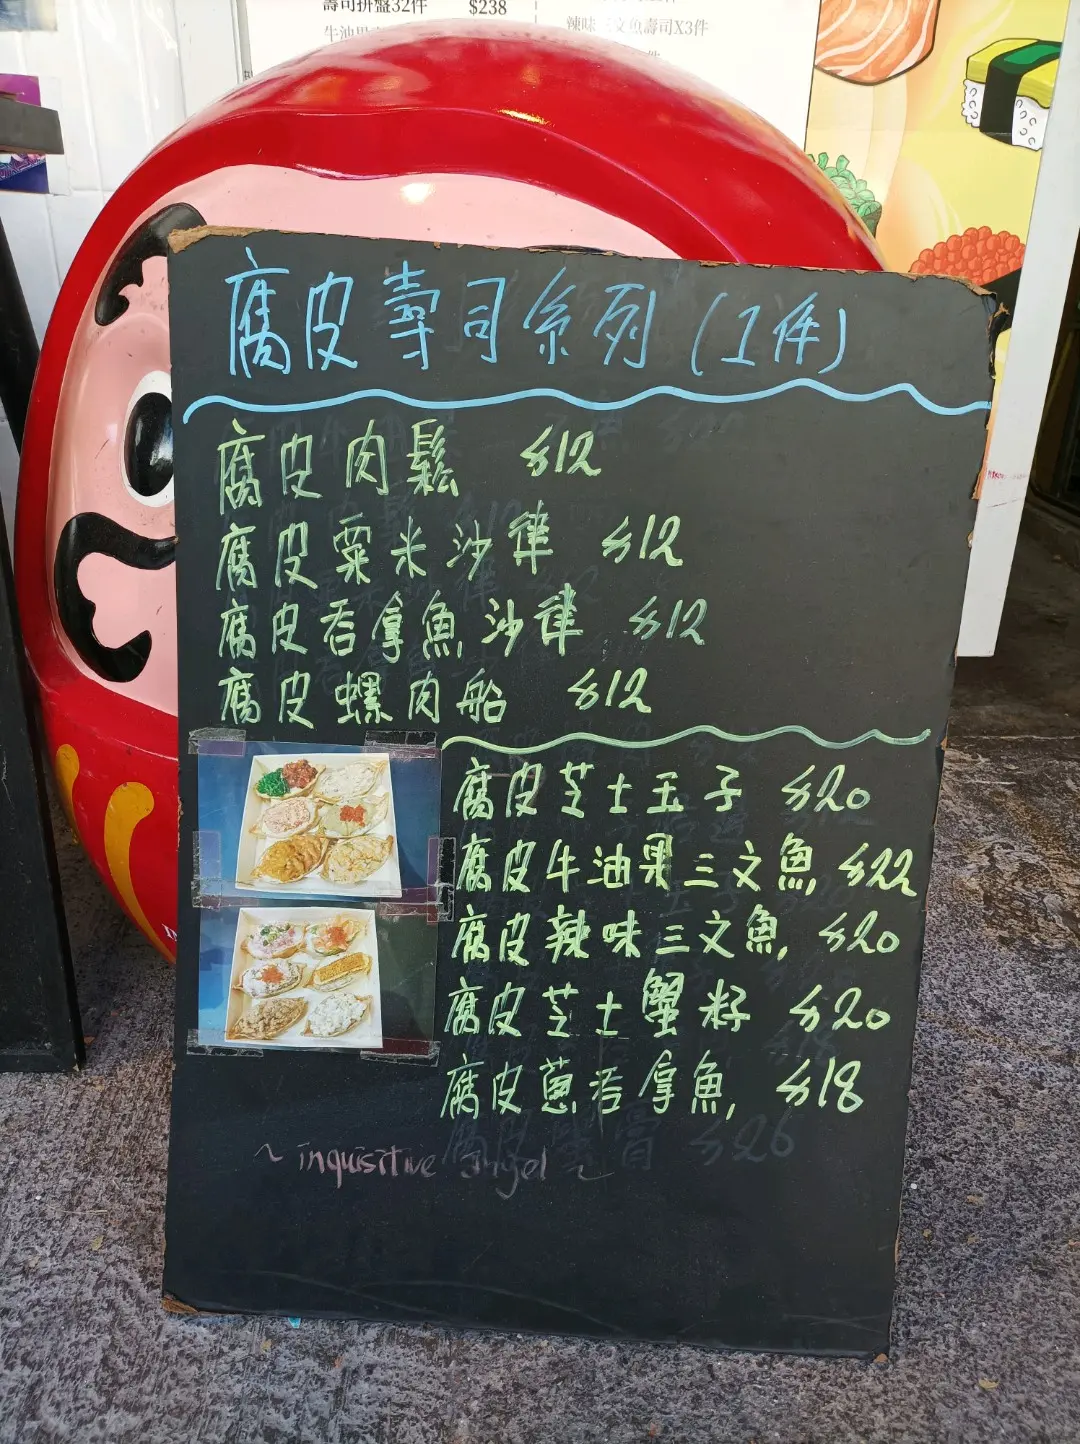 壽司拼盤32件 $238
辣味三文魚壽司X3件
腐皮壽司系列(1件)
腐皮肉鬆 $12
腐皮粟米沙律 $12
腐皮吞拿魚沙律 $12
腐皮螺肉船 $12
腐皮芝士玉子 $20
腐皮牛油果三文魚 $22
腐皮辣味三文魚 $20
腐皮芝士蟹籽 $20
腐皮蔥吞拿魚 $18
~ inquisitive angel ~